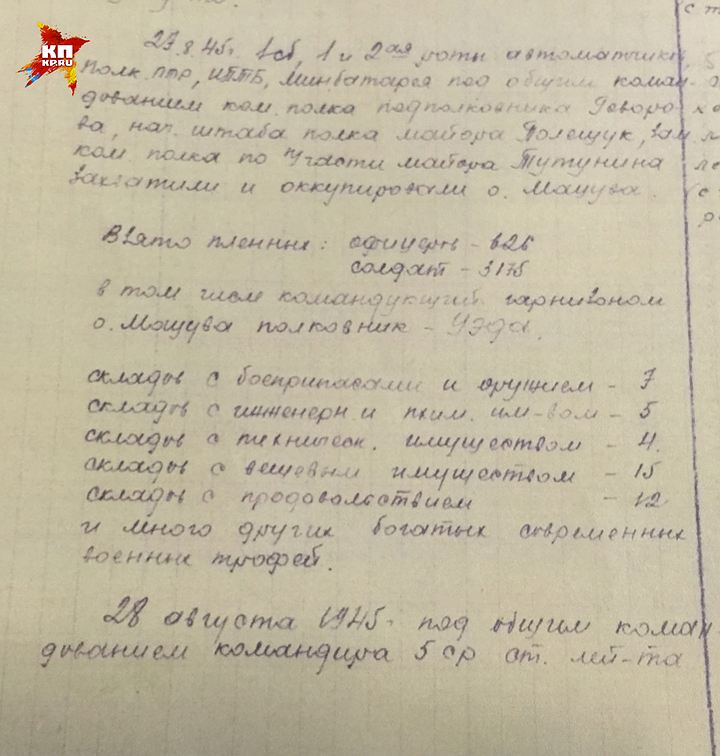 КП
KP.RU
27.8.45г. 1сб, 1 и 2ая роты автоматчиков,
полк. ПТР, ИПТБ, минбатарея под общим коман-
дованием ком. полка подполковника Геворо-
ва, нач. штаба полка майора Полещук, зам
ком. полка по части майора Тутунина
захватили и оккупировали о. Мацува.
Взято пленных: офицеров -
солдат - 3175
в том числе командующий гарнизоном
о. Мацува полковник - Уэда.
складов с боеприпасами и оружием - 7
складов с инженерн. и пхим. им-вом - 5
складов с техническ. имуществом - 4.
складов с вещевым имуществом - 15
складов с продовольствием - 12
и много других богатых современных
военных трофей.
28 августа 1945г. под общим коман
дованием командира 5 ср ст. лей-та